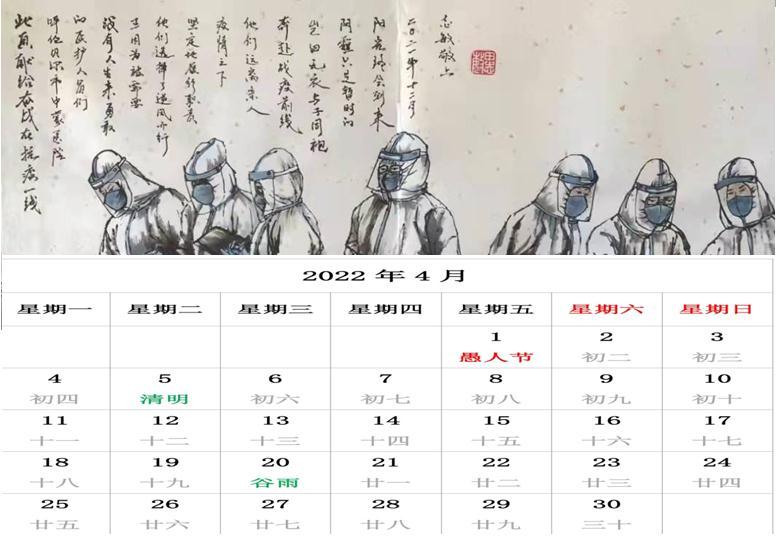 此画献给奋战在抗疫一线
呼伦贝尔市中蒙医院
的医护人员们
没有人生来勇敢
只因为被需要
他们选择了逆风而行
坚定地履行职责
疫情之下
他们远离亲人
奔赴战疫前线
岂曰无衣 与子同袍
阴霾只是暂时的
阳光终会到来
二〇二一年十二月
志敏敬上
2022 年 4 月
星期一 星期二 星期三 星期四 星期五 星期六 星期日
1 2 3
愚人节 初二 初三
4 5 6 7 8 9 10
初四 清明 初六 初七 初八 初九 初十
11 12 13 14 15 16 17
十一 十二 十三 十四 十五 十六 十七
18 19 20 21 22 23 24
十八 十九 谷雨 廿一 廿二 廿三 廿四
25 26 27 28 29 30
廿五 廿六 廿七 廿八 廿九 三十